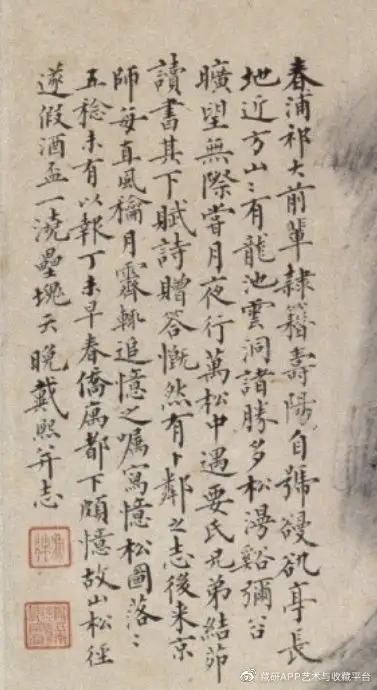 春浦祁大前輩隸籍壽陽自號䜱䜪亭長
地近方山〻有龍池雲洞諸勝多松漫谿彌谷
曠望無際嘗月夜行萬松中遇要氏兄弟結茆
讀書其下賦詩贈答慨然有卜鄰之志後來京
師每直風穐月霽輒追憶之囑寫憶松圖落〻
五稔未有以報丁未早春僑寓都下頗憶故山松徑
遂假酒盃一澆壘塊天晚戴熙并志
藏研APP艺术与收藏平台